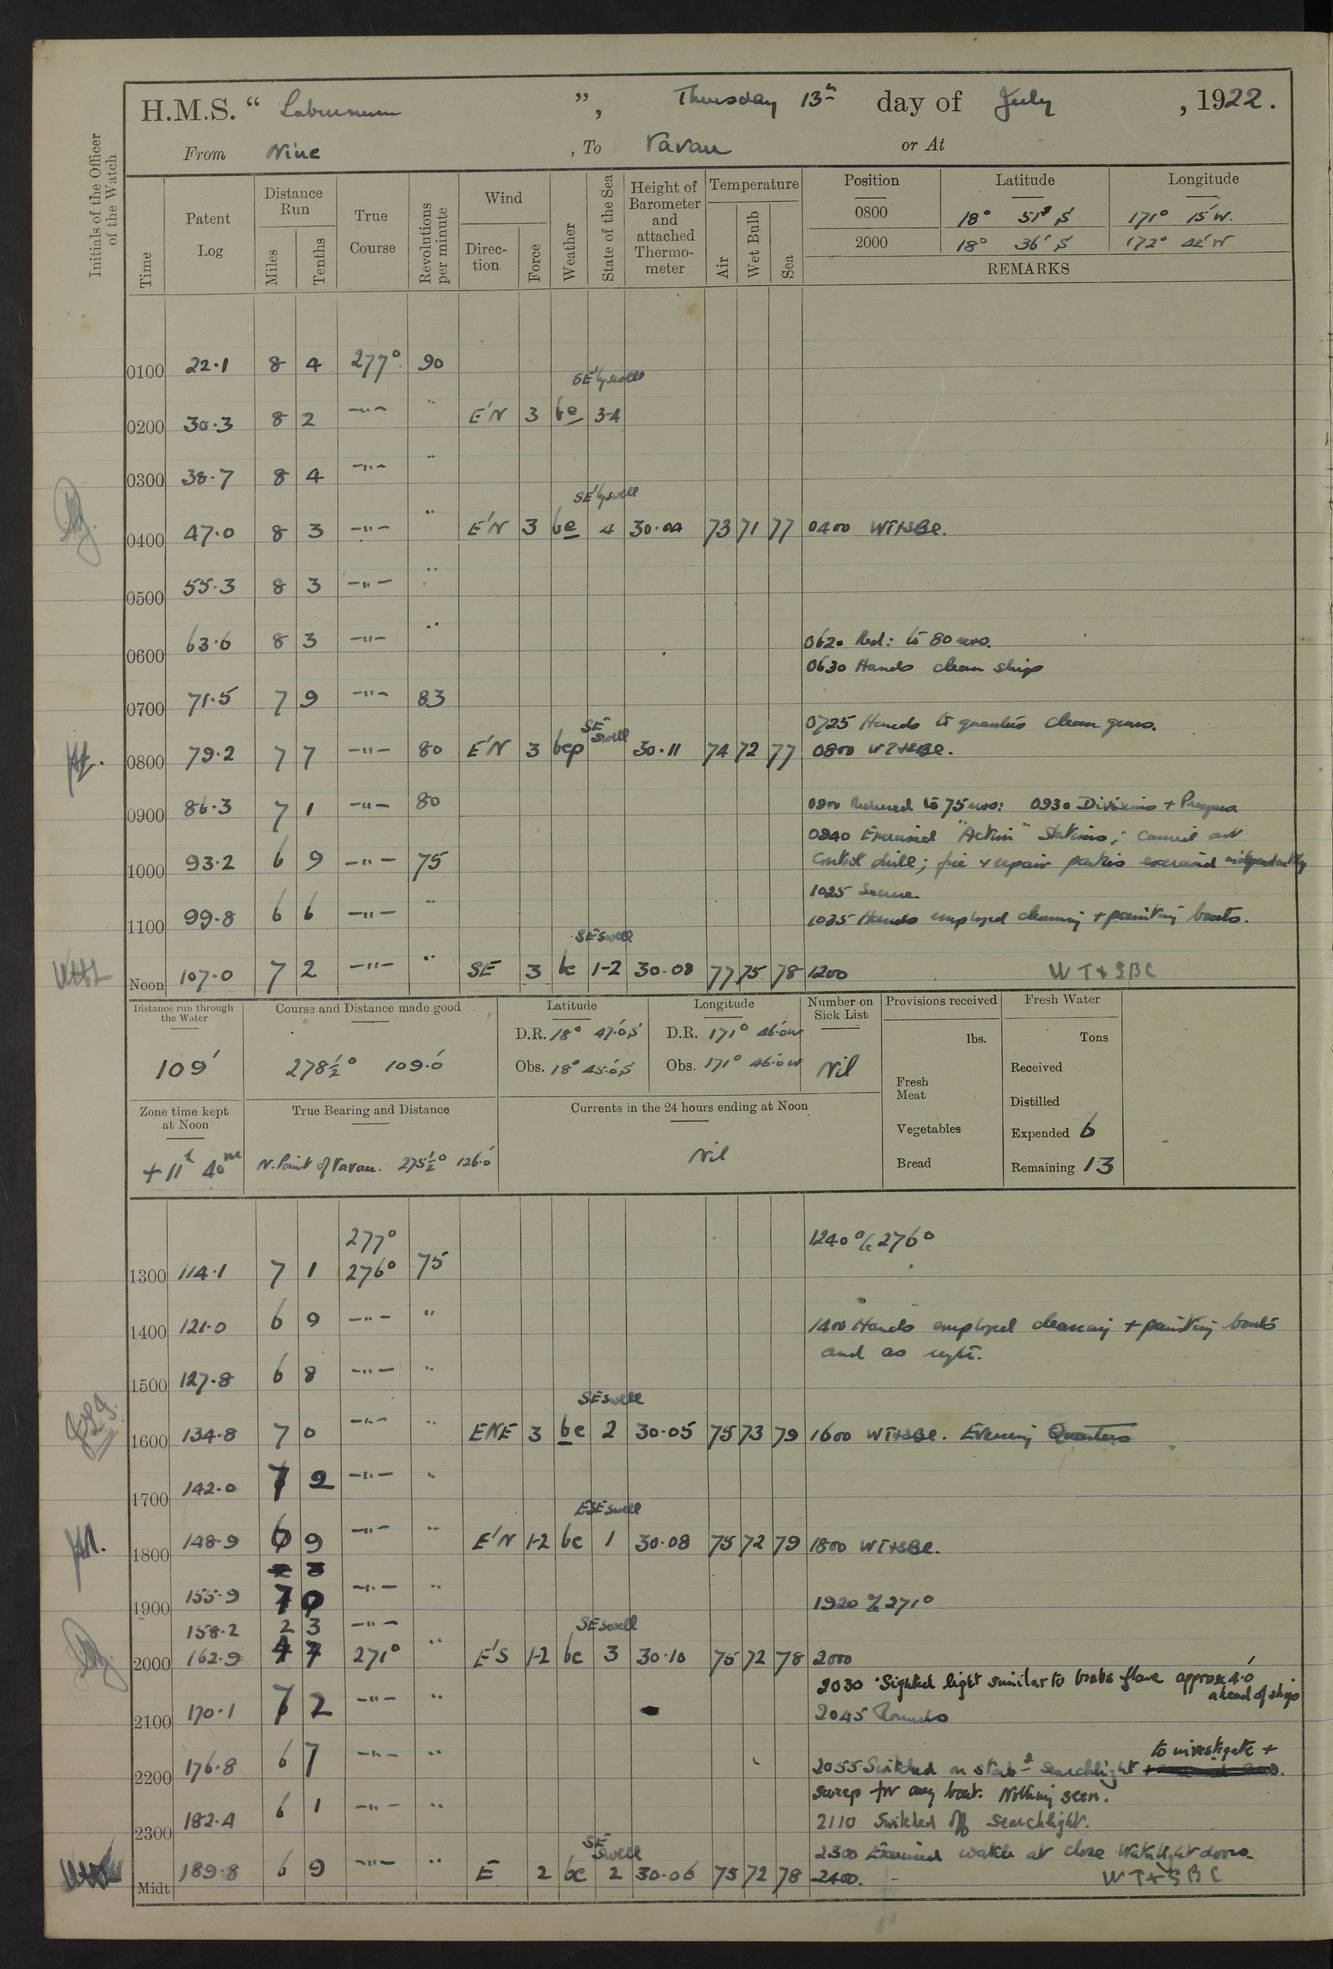 H.M.S. “ Laburnum ”, Thursday 13th day of July , 1922.
From Niue , To Vavau or At
Initials of the Officer of the Watch
Time Patent Log Distance Run Miles Tenths True Course Revolutions per minute Wind Direc- tion Force Weather State of the Sea Height of Barometer and attached Thermo- meter Temperature Air Wet Bulb Sea Position Latitude Longitude
0800 18° 51' S 171° 15' W.
2000 18° 36' S 172° 42' W
REMARKS
0100 22.1 8 4 277° 90
SE'ly swell
0200 30.3 8 2 -"- " E'N 3 bc 3-4
0300 38.7 8 4 -"- "
SE'ly swell
0400 47.0 8 3 -"- " E'N 3 bc 4 30.04 73 71 77 0400 WT+SBC.
0500 55.3 8 3 -"- "
0600 63.6 8 3 -"- " 0620 Red: to 80 revs.
0630 Hands clean ship
0700 71.5 7 9 -"- 83
0725 Hands to quarters clean guns.
SE swell
0800 79.2 7 7 -"- 80 E'N 3 bcp 30.11 74 72 77 0800 WT+SBC.
0900 86.3 7 1 -"- 80 0900 Reduced to 75 revs: 0930 Divisions + Prayers
0940 Exercised "Action" Stations;
1000 93.2 6 9 -"- 75 Control drill; fire + repair parties exercised independently
1025 Secure.
1100 99.8 6 6 -"- " 1035 Hands employed cleaning + painting boats.
SE swell
Noon 107.0 7 2 -"- " SE 3 bc 1-2 30.08 77 75 78 1200 WT+SBC
Distance run through the Water Course and Distance made good Latitude Longitude Number on Sick List Provisions received Fresh Water
D.R. 18° 47.0' S D.R. 171° 46.0' W lbs. Tons
109' 278½° 109.0' Obs. 18° 45.0' S Obs. 171° 46.0' W Nil Received
Fresh Meat Distilled
Zone time kept at Noon True Bearing and Distance Currents in the 24 hours ending at Noon
Vegetables Expended 6
+ 11h 40m N. Point of Vavau. 275½° 126.0' Nil Bread Remaining 13
277° 1240 a/c 276°
1300 114.1 7 1 276° 75
1400 121.0 6 9 -"- " 1400 Hands employed cleaning + painting boats
and as reqte.
1500 127.8 6 8 -"- "
SE swell
1600 134.8 7 0 -"- " ENE 3 bc 2 30.05 75 73 79 1600 WT+SBC. Evening Quarters
1700 142.0 7 2 -"- "
ESE swell
1800 148.9 6 9 -"- " E'N 1-2 bc 1 30.08 75 72 79 1800 WT+SBC.
1900 155.9 7 0 -"- " 1920 a/c 271°
158.2 2 3 -"- SE swell
2000 162.9 4 7 271° " E'S 1-2 bc 3 30.10 75 72 78 2000
2030 Sighted light similar to boats flare approx 4.0'
ahead of ship
2100 170.1 7 2 -"- " 2045 Rounds
to investigate +
2200 176.8 6 7 -"- " 2055 Switched on starbd searchlight
sweep for any boat. Nothing seen.
2300 182.4 6 1 -"- " 2110 Switched off searchlight.
SE swell
2300 Exercised watch at close Watertight doors.
Midt 189.8 6 9 -"- " E 2 bc 2 30.06 75 72 78 2400. WT+SBC